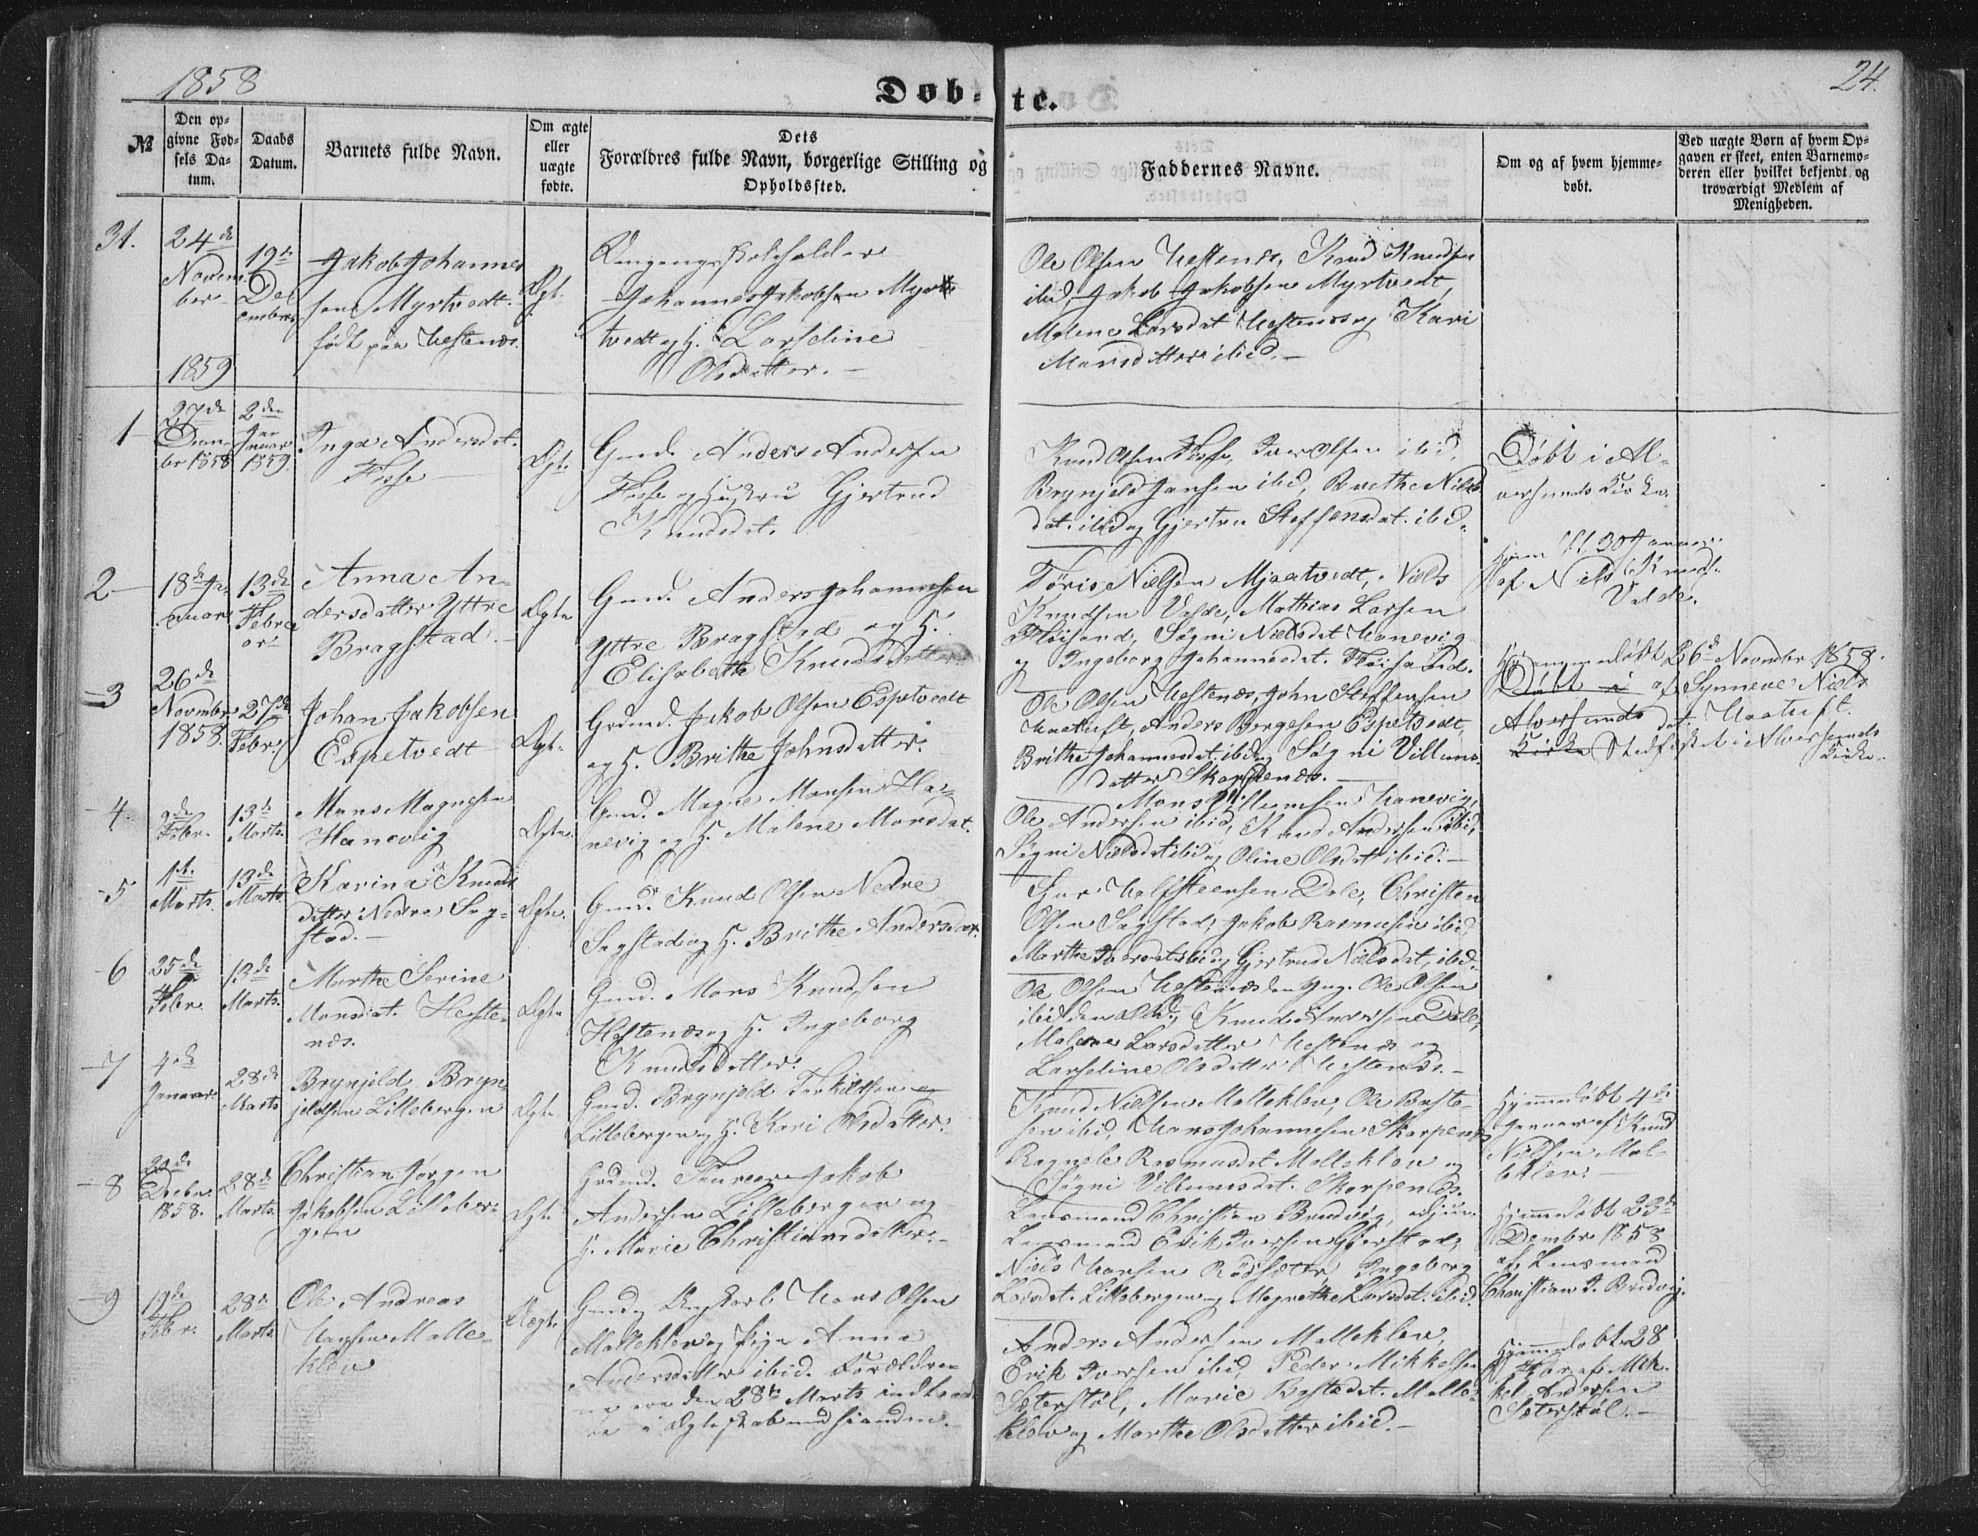 1858
24.
Døb-
te.
№
Den op-
givne Fød-
sels Da-
tum.
Daabs
Datum.
Barnets fulde Navn.
Om ægte
eller
uægte
fødte.
Dets
Forældres fulde Navn, borgerlige Stilling og
Opholdssted.
Faddernes Navne.
Om og af hvem hjemme-
døbt.
Ved uægte Børn af hvem Op-
gaven er skeet, enten Barnemo-
deren eller hvilket bekjendt og
troværdigt Medlem af
Menigheden.
31.
24de
Novem-
ber
19de
Dec
ember
Jakob Johannes
sen Myrtvedt
født paa Hestenæs.
Ægt.
Omgangsskoleholder
Johannes Jakobsen Myrt
tvedt og H. Larseline
Olsdatter.
Ole Olsen Hestenæs, Knud Knudsen
ibid, Jakob Jakobsen Myrtvedt,
Malene Larsdat Hestenæs og Kari
Monsdatter ibid.
1859
1
27de
Decem-
br 1858
2den
Jan
nuar
1859
Inga Andersdat.
Fosse
Ægt.
Gmd. Anders Andersen
Fosse og Hustru Gjertrud
Knudsdt.
Knud Olsen Fosse, Iver Olsen ibid,
Brynjeld Jansen ibid, Brithe Niels
dat. ibid og Gjertru Steffensdat. ibid.
Døbt i Al-
versunds Kirke.
2
18de Ja-
nuar
13de
Febru
ar
Anna An-
dersdatter Yttre
Bragstad.
Ægte
Gmd. Anders Johannesen
Yttre Bragstad og H.
Elisabeth Knudsdatter
Tøris Nielsen Mjaatvedt, Niels
Knudsen Valde, Mathias Larsen
Fløisand, Søgni Nielsdat Hanevig
og Ingeborg Johannesdat. Fløisand.
Hjem 30 Januar
af Niels Knuds.
Valde.
3
26de
Novmber
1858.
27de
Febr.
Johan Jakobsen
Espetvedt
Ægte
Grdmd. Jakob Olsen Espetvedt
og H. Brithe Johnsdatter.
Ole Olsen Hestenæs, John Steffensen
Haatuft, Anders Børgesen Espetvedt,
Brithe Johannesdat. ibid og Søgni Villums-
datter Skarpenæs.
Hjemmedøbt 26de November 1858.
Døbt i af Synneve Niels
Alversunds dat. Haatuft.
Kirke Stadfæstet i Alversunds
Kirke.
4.
Febr.
13de
Marts.
Mons Magnesen
Hanevig
Ægte.
Gmd. Magne Monsen Ha-
nevig og H. Malene Monsdat.
Mons Villumsen Hanevig,
Ole Andersen ibid, Knud Andersen ibid,
Søgni Nielsdat ibid og Oline Olsdat ibid.
5
1ste
Marts.
13de
Marts
Karina Knuds
datter Nedre Sag-
stad.
Ægte.
Gmd. Knud Olsen Nedre
Sagstad og H. Brithe Andersdat.
Halfsteensen Dale, Christen
Olsen Sagstad, Jakob Rasmusen ibid
Marthe Iversdat ibid og Gjertrud Nielsdat, ibid.
6
25de
Febr.
13de
Marts.
Marthe Serine
Monsdat. Heste-
næs.
Ægte
Gmd. Mons Knudsen
Hestenæs og H. Ingeborg
Knudsdatter.
Ole Olsen Hestenæs den yng. Ole Olsen
ibid den Æld., Knud Andersen Dale,
Malene Larsdatter Hestenæs og
Larseline Olsdatter Hestenæs.
7
4de
Januar
28de
Marts
Brynjeld Bryn-
jeldsen Lillebergen
Ægte
Gmd. Brynjeld Terkildsen
Lillebergen og H. Kari Olsdatter.
Knud Nielsen Molleklev, Ole Baste-
sen ibid, Hans Johannesen Skarpenæs
Ragnele Rasmusdat Molleklev og
Søgni Villumsdat. Skarpenæs.
Hjemmedøbt 4de
Januar af Knud
Nielsen Mol-
leklev.
8
Decbr.
1858.
28de
Marts.
Christian Jørgen
Jakobsen Lilleber-
gen
Ægte
Grdmd. Jakob
Andersen Lillebergen og
H. Marie Christiansdatter.
Lensmand Christian Brudvig,
Lensmand Erik Iversen Gjerstad,
Niels Hansen Rødsæter, Ingeborg
Larsdat. Lillebergen og Magrethe Larsdat. ibid.
Hjemmedøbt 23de
Decembr 1858
af Lensmand
Christian J. Brudvig.
9
19de
Febr.
28de
Marts.
Ole Andreas
Hansen Malle-
klev
Uægte
Ungkarl Hans Olsen
Molleklev og Pige Anna
Andersdatter ibid. Forældrene
ere den 28de Marts indtraad
te i Ægteskab med hinanden.
Anders Andersen Molleklev,
Erik Iversen ibid, Peder Mikkelsen
Sæterstøl, Marie Bastedat. Molle-
klev og Marthe Olsdatter ibid.
Hjemmedøbt 28
Febr af Mik-
kel Andersen
Sæterstøl.